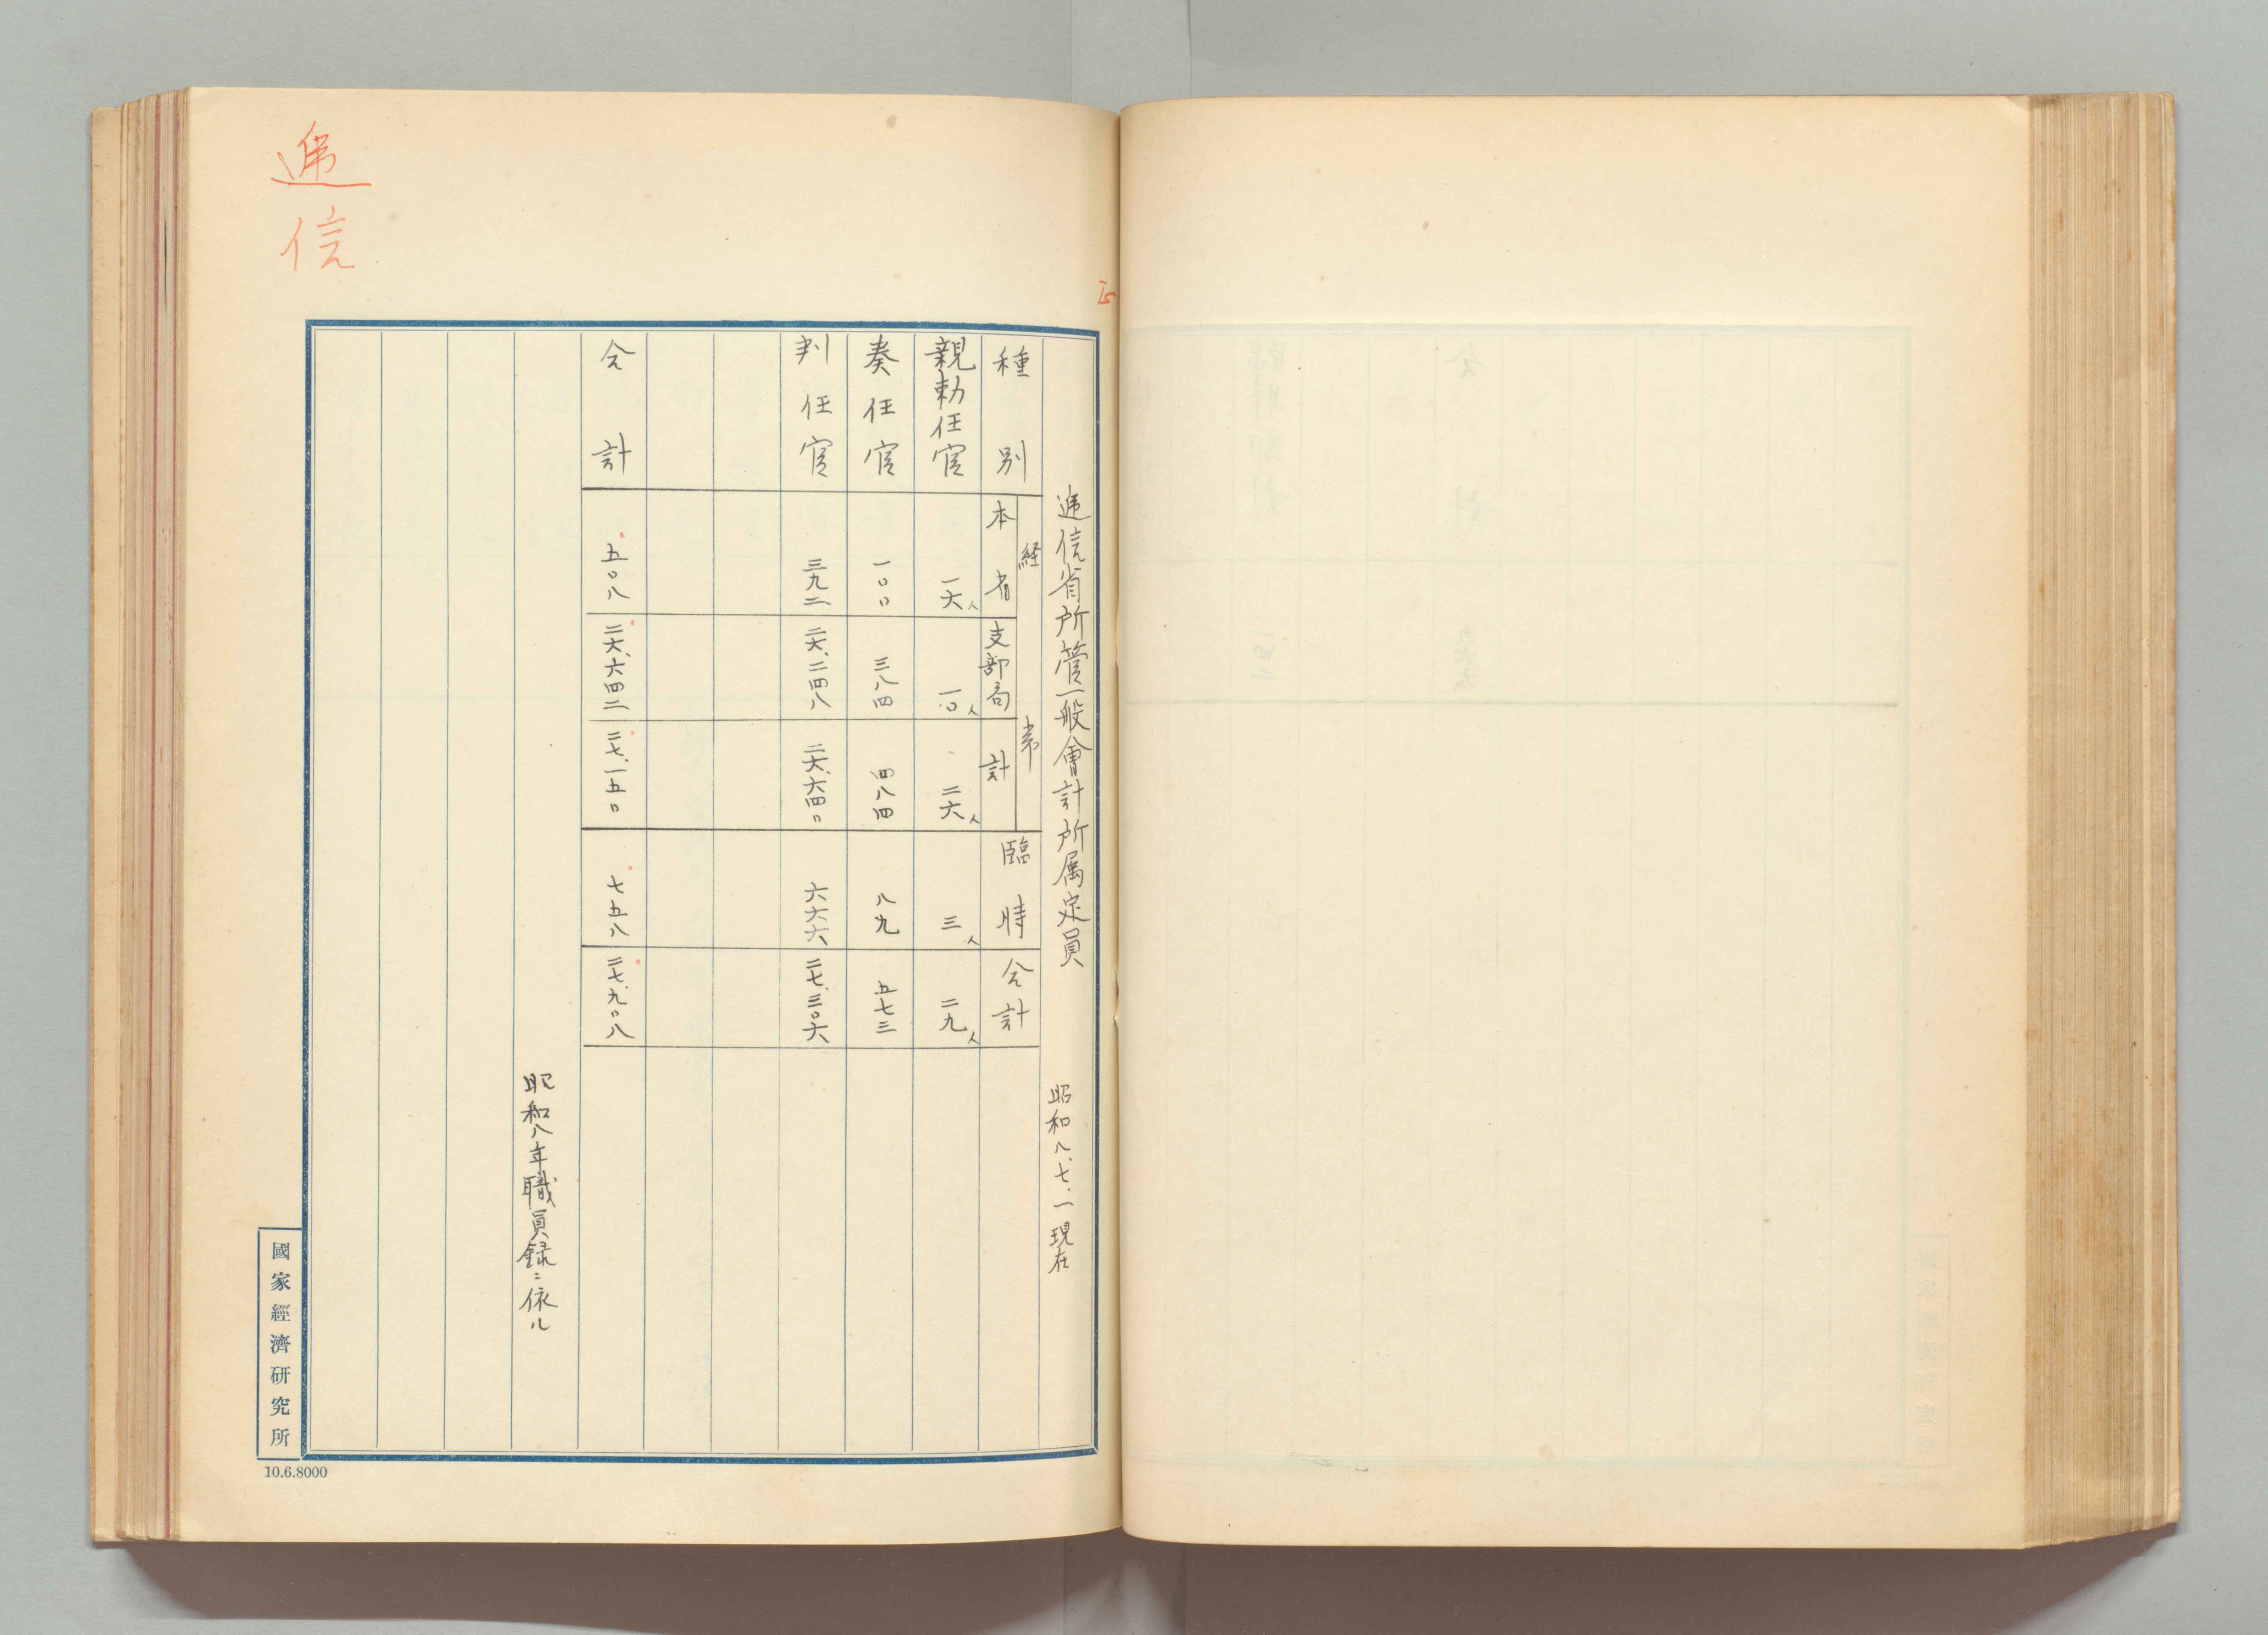 逓信
逓信省所管一般會計所属定員　昭和八、七、一現在
種別　経常　本省　支部局　計　臨時　合計
親勅任官　一六人　一〇人　二六人　三人　二九人
奏任官　一〇〇　三八四　四八四　八九　五七三
判任官　三九二　二六、二四八　二六、六四〇　六六六　二七、三〇六
合計　五〇八　二六、六四二　二七、一五〇　七五八　二七、九〇八
昭和八年職員録ニ依ル
國家經濟研究所
10.6.8000